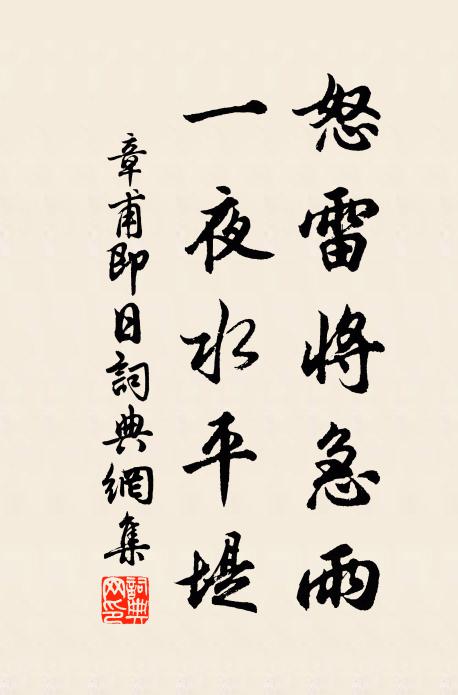 怒雷將急雨
一夜水平堤
章甫即日詞典網集
詞典
网印